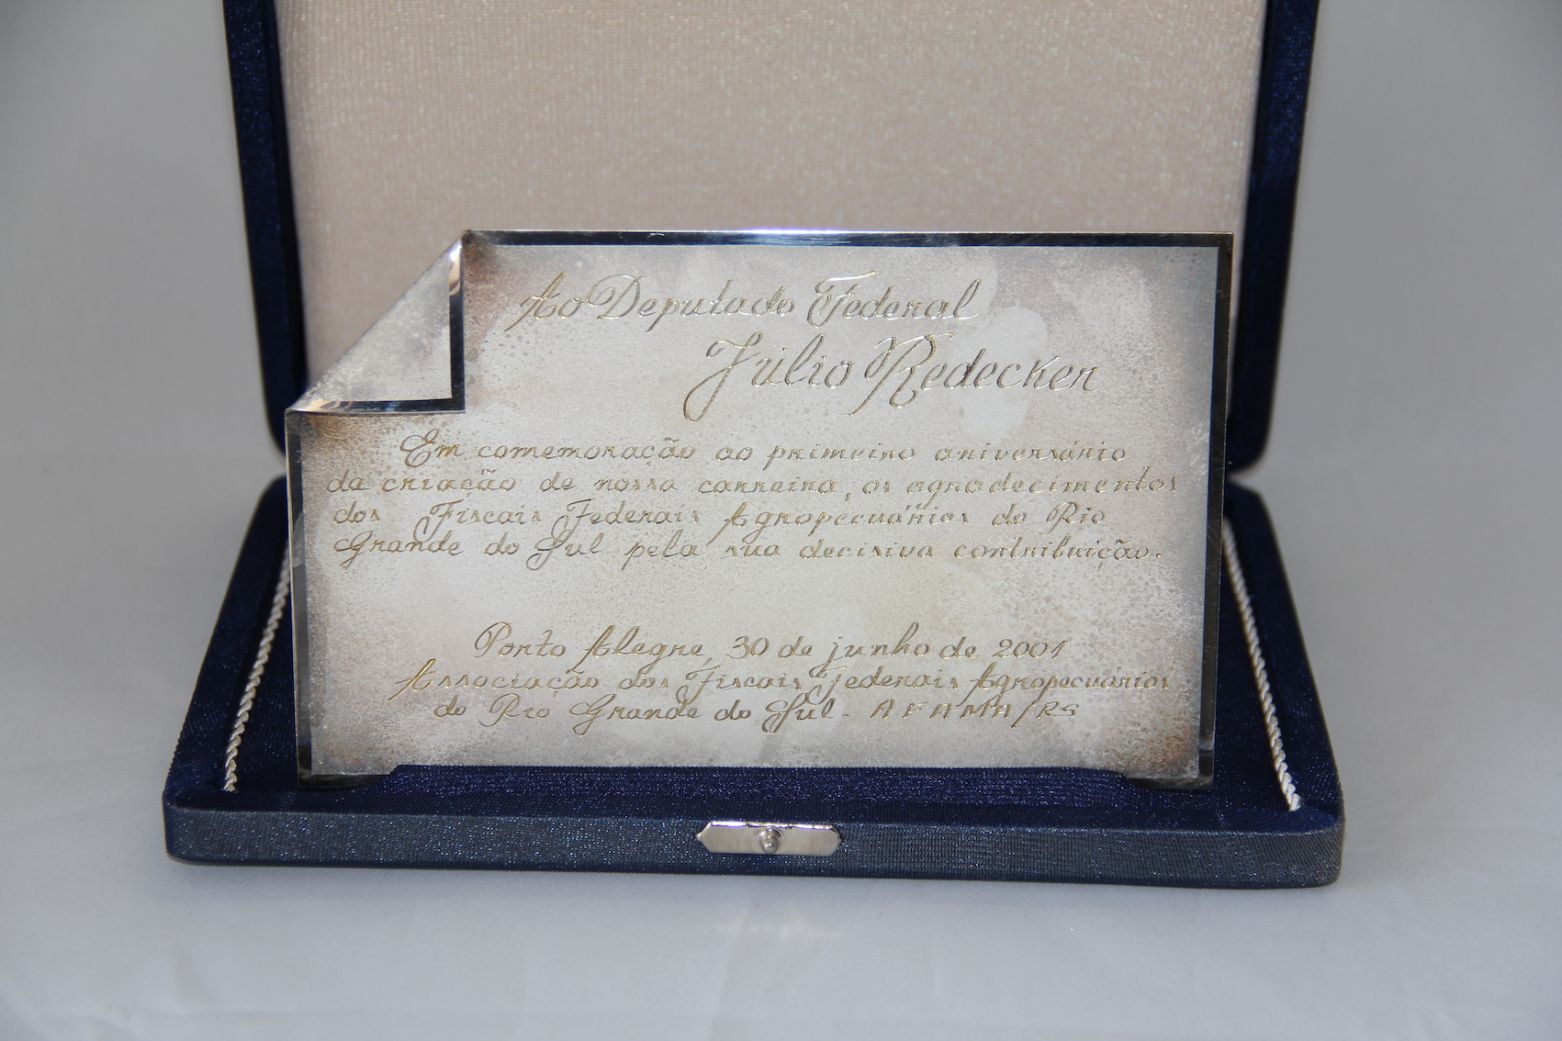 Ao Deputado Federal
Júlio Redecker
Em comemoração ao primeiro aniversário
da criação de nossa carreira, os agradecimentos
dos Fiscais Federais Agropecuários do Rio
Grande do Sul pela sua decisiva contribuição.
Porto Alegre, 30 de junho de 2001
Associação dos Fiscais Federais Agropecuários
do Rio Grande do Sul - AFAMA/RS